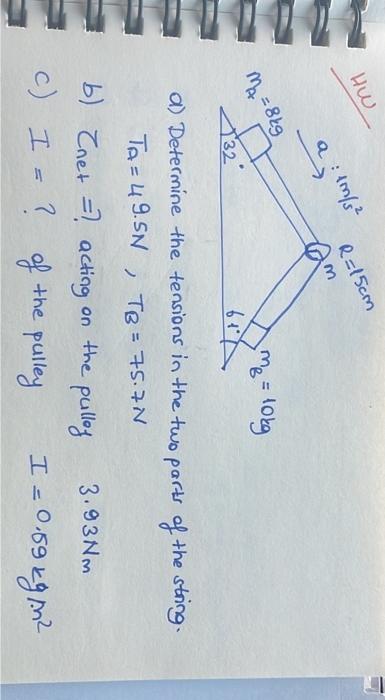 HW
a : 1m/s²
R = 15cm
m
mA = 8kg
mB = 10kg
32°
61°
a) Determine the tensions in the two parts of the string.
TA = 49.5N , TB = 75.7N
b) τnet = ? acting on the pulley 3.93Nm
c) I = ? of the pulley I = 0.59 kg m²